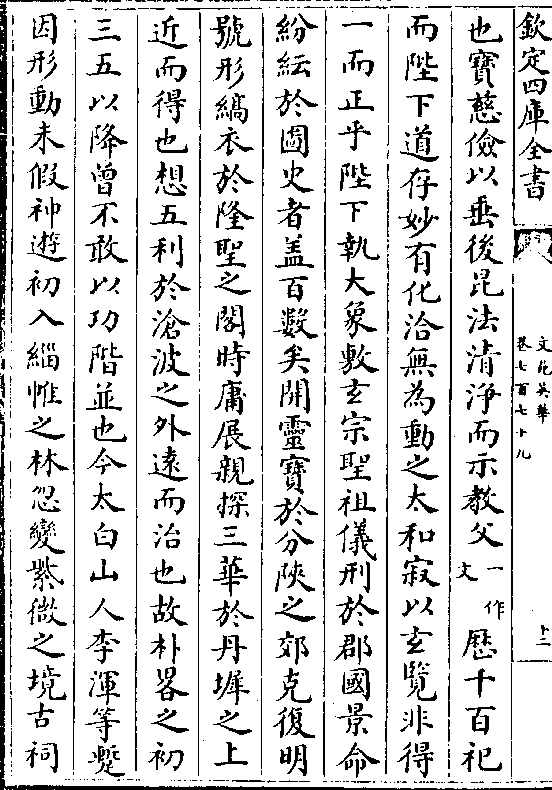 欽定四庫全書
文苑英華
卷七百七十九
十二
也寶慈儉以垂後昆法清淨而示教父一作文歷千百祀
而陛下道存妙有化洽無為動之太和寂以玄覽非得
一而正乎陛下執大象敷玄宗聖祖儀刑於郡國景命
紛紜於圖史者盖百數矣開靈寶於分陜之郊克復明
號形縞衣於隆聖之閣時庸展親探三華於丹墀之上
近而得也想五利於滄波之外遠而治也故朴畧之初
三五以降曾不敢以功階並也今太白山人李渾等蹔
因形動未假神遊初入緇帷之林忽變紫微之境古祠